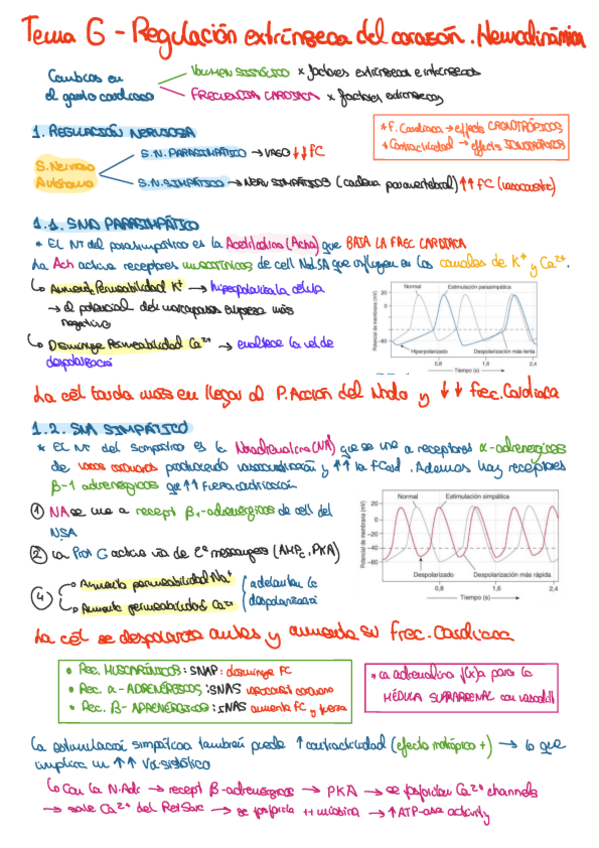 Tema 6 - Regulación extrínseca del corazón. Hemodinámica
Cambios en
el gasto cardiaco
VOLUMEN SISTÓLICO x factores extrínsecos e intrínsecos
FRECUENCIA CARDIACA x factores extrínsecos
1. REGULACIÓN NERVIOSA
* F. Cardiaca → effects CRONOTRÓPICOS
* Contractilidad → effects IONOTRÓPICOS
S. Nervioso
Autónomo
S.N. PARASIMPÁTICO → VAGO ↓↓ FC
S.N. SIMPÁTICO → NERV SIMPÁTICOS (cadena paravertebral) ↑↑ FC (vasoconstric)
1.1. SNA PARASIMPÁTICO
* El Nt del parasimpático es la Acetilcolina (Ach) que BAJA LA FREC CARDIACA
La Ach activa receptores muscarínicos de cell Nd.SA que influyen en los canales de K+ y Ca2+.
↳ Aumenta Permeabilidad K+ → hiperpolariza la célula
→ el potencial del marcapasos empieza más
negativo
↳ Disminuye Permeabilidad Ca2+ → enlentece la vel de
despolarizació
Normal
Estimulación parasimpática
Potencial de membrana (mV)
20
0
-60
Hiperpolarizado
Despolarización más lenta
0,8
1,6
2,4
Tiempo (s)
La cél tarda más en llegar al P.Acción del Nodo y ↓↓ Frec. Cardiaca
1.2. SNA SIMPÁTICO
* El Nt del Simpático es la Noradrenalina (NA) que se une a receptores α-adrenérgicos
de vasos coronarios produciendo vasoconstricción y ↑↑ la FCard. Además hay receptores
β-1 adrenérgicos que ↑↑ Fuerza contracción
① NA se une a recept β1-adrenérgicos de cell del
NSA
② La Prot G activa vía de 2º mensajeros (AMPc, PKA)
④ Aumenta permeabilidad Na+
Aumenta permeabilidad Ca2+
adelantan la
despolarizació
Normal
Estimulación simpática
Potencial de membrana (mV)
20
0
-20
-40
-60
Despolarizado
Despolarización más rápida
0,8
1,6
2,4
Tiempo (s)
La cél se despolariza antes y aumenta su Frec. Cardiaca
• Rec. MUSCARÍNICOS: SNAP: disminuye FC
• Rec. α-ADRENÉRGICOS: SNAS vasoconst coronario
• Rec. β-ADRENÉRGICOS: SNAS aumenta FC y fuerza
* La adrenalina f(x)a para la
MÉDULA SUPRARRENAL con vasodil
La estimulació simpática también puede ↑ contractilidad (efecto inotrópico +) → lo que
implica un ↑↑ V. sistólico
↳ Con la N.Adr → recept β-adrenérgicos → PKA → se fosforilan Ca2+ channels
→ sale Ca2+ del RetSarc → se fosforila ++ miosina → ↑ ATP-asa activity